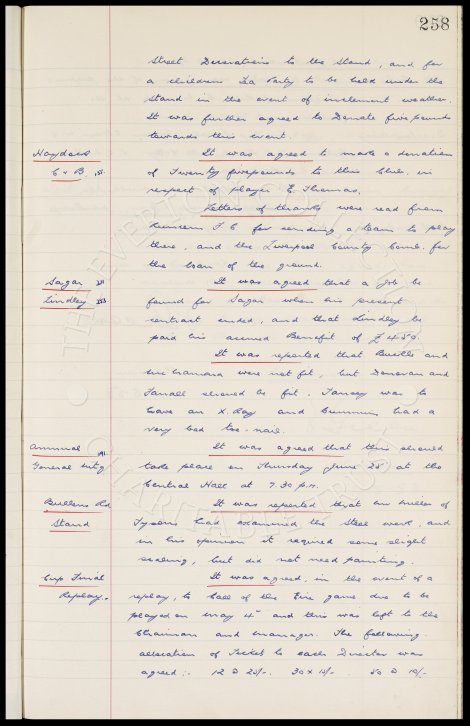 258
Street Decorations to the Stand, and for
a childrens Tea Party to be held under the
Stand in the event of inclement weather.
It was further agreed to Donate five pounds
towards this event.
Haydock
It was agreed to make a donation
C & B
of Twenty five pounds to this Club, in
respect of player E. Thomas.
Letters of thanks were read from
F C for sending a team to play
there, and the Liverpool County Comb. for
the loan of the ground.
Sagar
It was agreed that a job be
Lindley
found for Sagar when his present
contract ended, and that Lindley be
paid his accrued Benefit of £450.
It was reported that Buckle and
were not fit, but Donovan and
Farrall should be fit. Tansey was to
have an X. Ray and Cummins had a
very bad toe-nail.
Annual
It was agreed that this should
General Mtg
take place on Thursday June 28 at the
Central Hall at 7.30 p.m.
Bullens Rd
It was reported that Mr Miller of
Stand
Tysons had examined the Steel work, and
in his opinion it required some slight
scaling, but did not need painting.
Cup Final
It was agreed, in the event of a
Replay.
replay, to call off the Eire game due to be
played on May 4th and this was left to the
Chairman and Manager. The following
allocation of Ticket to each Director was
agreed:- 12 @ 25/-. 30 x 10/- 50 @ 10/-
THE EVERTON COLLECTION
CHARITABLE TRUST